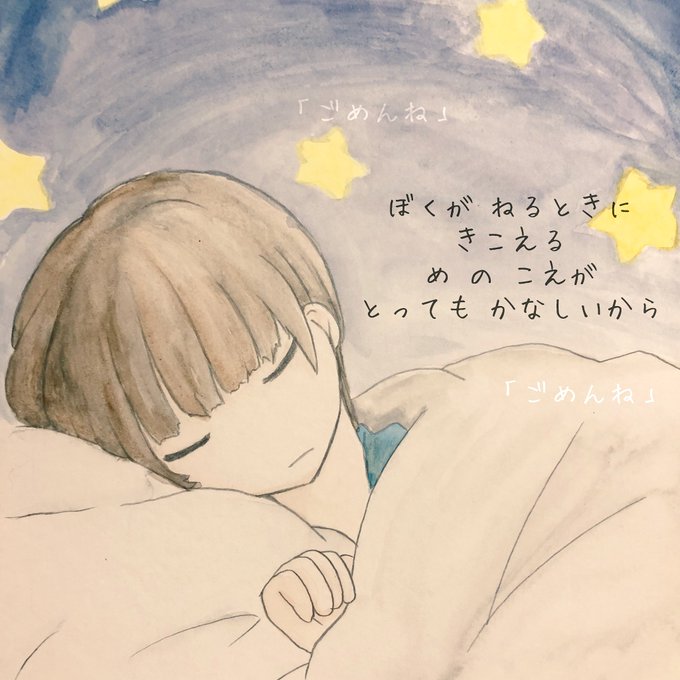 「ごめんね」
ぼくが ねるときに
きこえる
め の こえが
とっても かなしいから
「ごめんね」